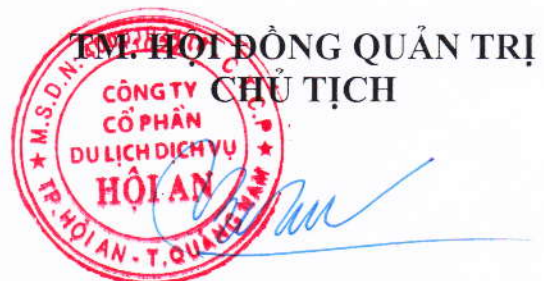 TM. HỘI ĐỒNG QUẢN TRỊ
CHỦ TỊCH
M.S.D.N:
C.T.C.P
CÔNG TY
CỔ PHẦN
DU LỊCH DỊCH VỤ
HỘI AN
TP. HỘI AN - T. QUẢNG NAM